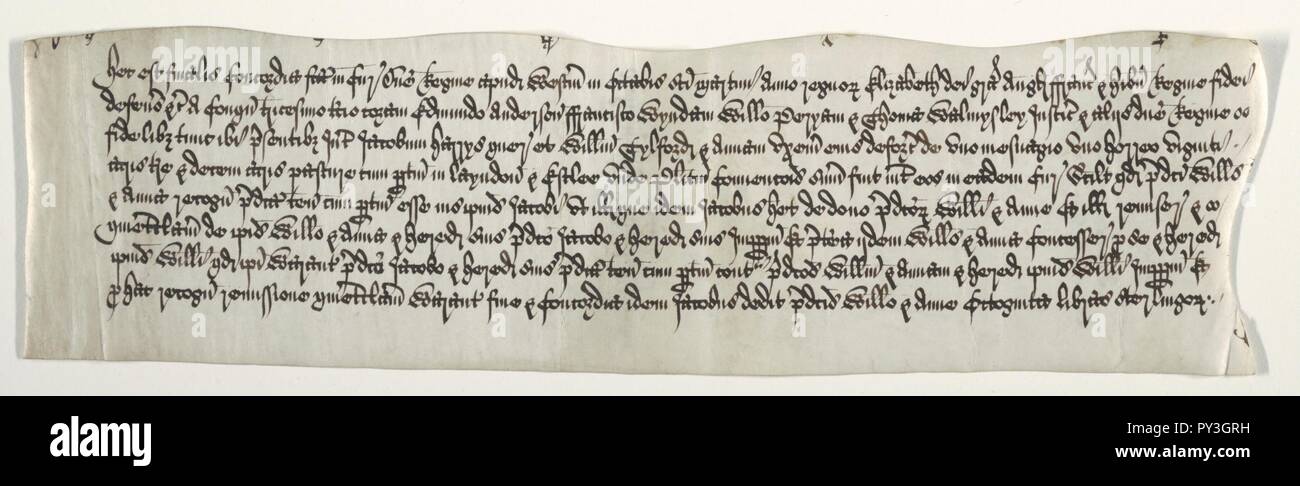 Hec est finalis concordia fcā in Cur Dn̄e Regine apud Westm̄ in Octabis Sc̄i Martini Anno regnoꝝ Elizabeth dei gr̄a Angł Ffranc̄ & Hibn̄ Regine fidei
defens̄ &c̄ A Conqū Tricesimo coram Edmundo Anderson Ffrancisco Wyndam Willō Peryam & Thoma Walmysley Justic̄ & alijs dn̄e Regine
fidelibȝ tunc ibi p̄sentibȝ Int̄ Jacobum Harrys quer et Willm̄ Tylford & Annam vx̄em eius deforc̄ de vno mesuagio vno horreo viginti
acris t̄re & decem acris pasture cum ptin̄ in Layndon & Estlee Vnde pl̄itum Convencōis sum̄ fuit int̄ eos in eadem Cur Scilt qd p̄dc̄i Willūs
& Anna recogn̄ p̄dc̄a ten̄ cum ptin̄ esse ius ip̄ius Jacobi Vt illa que idem Jacobus het de dono p̄dc̄oꝝ Willi & Anne Et illa remiser &
quietclam̄ de ip̄is Willō & Anna & hered suis p̄dc̄o Jacobo & hered suis Imppm̄ Et p̄terea ijdem Willūs & Anna concesser p se & hered
ip̄ius Willi qd ip̄i Warant p̄dc̄o Jacobo & hered suis p̄dc̄a ten̄ cum ptin̄ cont̄ p̄dc̄os Willm̄ & Annam & hered ip̄ius Willi Imppm̄ Et
p hac recogn̄ remissione quietclam̄ Warant fine & Concordia idem Jacobus dedit p̄dc̄is Willō & Anne Octoginta libras sterlingoꝝ
alamy
PY3GRH
www.alamy.com